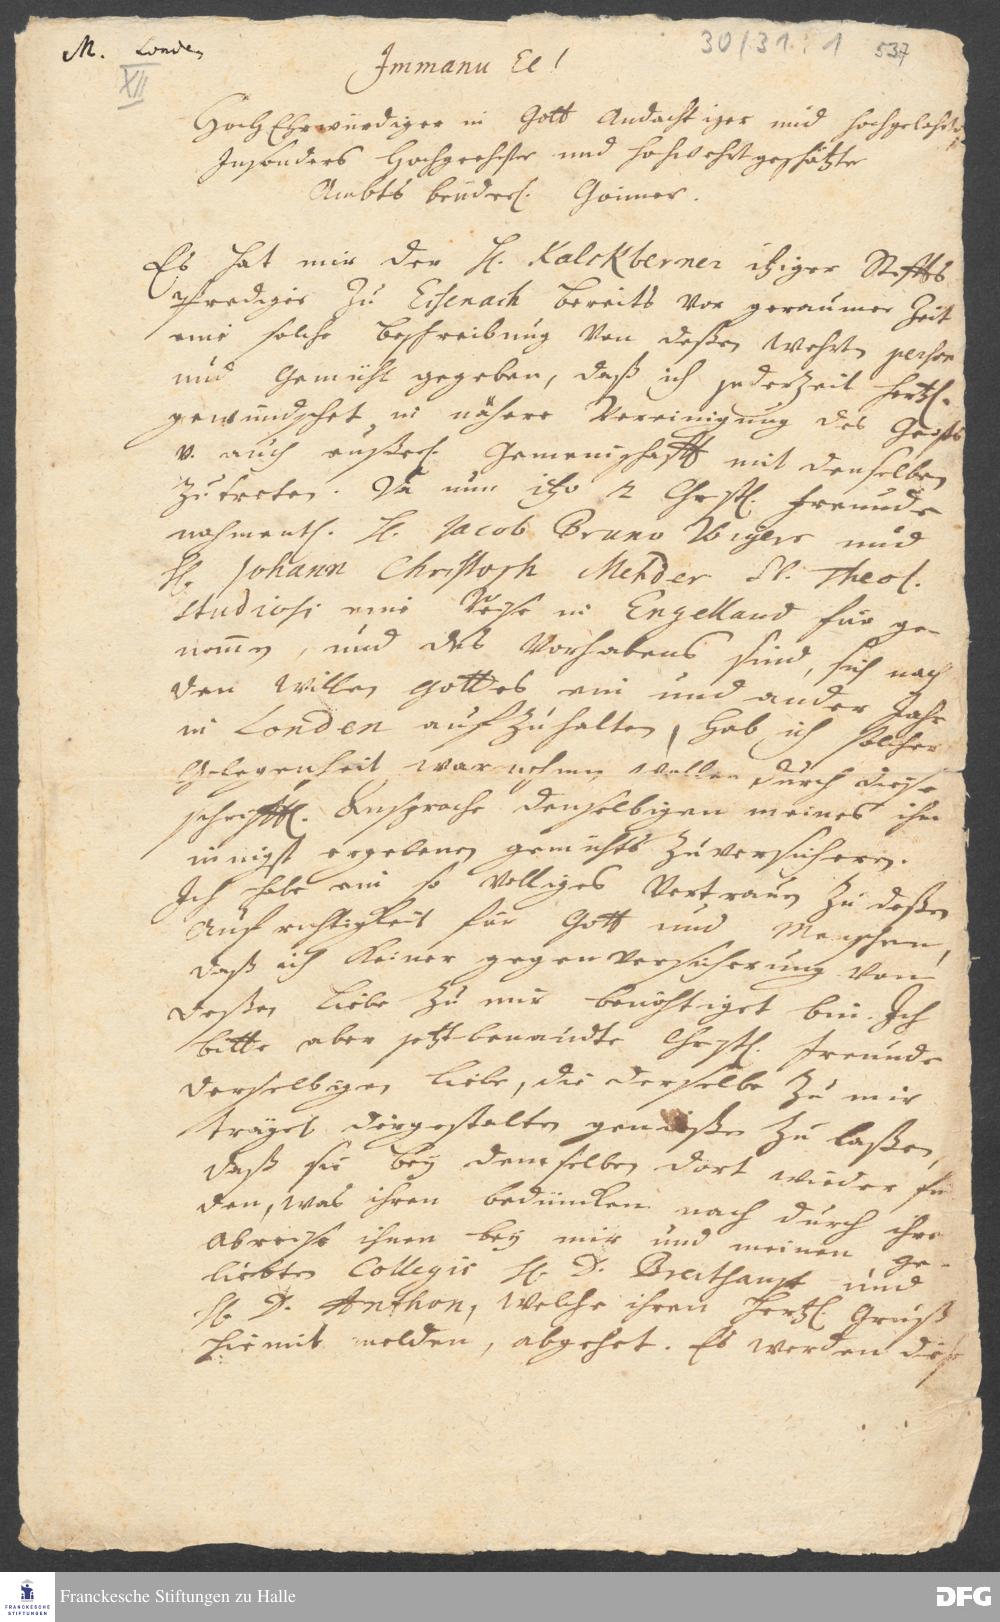 M. Londen
XII
30/31 : 1 537
Immanu El!
HochEhrwürdiger in Gott Andächtiger und hochgelahrter
Insonders Hochgeehrter und hochwehrtgeschätzter
Ambts brüderl. Gönner.
Es hat mir der H. Kalckberner itziger Stiffts
Prediger zu Eisenach bereits vor geraumer Zeit
eine solche beschreibung von deßen wehrten person
und Gemüht gegeben, daß ich jederzeit hertzl.
gewündschet, in nähere Vereinigung des Geistes
v. auch eußerl. Gemeinschafft mit denselben
zu treten. Da nun itzo 2 Christl. freunde
nahmentl. H. Jacob Bruno Wigers und
H. Johann Christoph Mehder St. Theol.
studiosi eine Reise in Engelland für ge-
nommen, und des Vorhabens sind, sich nach
den willen Gottes ein und ander Jahr
in Londen aufzuhalten, hab ich solcher
Gelegenheit warnehmen wollen durch diese
schrifftl. Ansprache denselbigen meines ihm
innigst ergebenen gemühts zu versichern.
Ich habe ein so völliges Vertrauen zu deßen
Aufrichtigkeit für Gott und Menschen,
daß ich keiner gegen versicherung von
deßen Liebe zu mir benöhtiget bin. Ich
bitte aber jetzt benandte Christl. freunde
derselbigen Liebe, die derselbe zu mir
träget dergestalten genießen zu laßen,
daß sie bey demselben dort wieder fin
den, was ihren bedüncken nach durch ihre
Abreise ihnen bey mir und meinen ge-
liebten Collegis H. D. Breithaupt und
H. D. Anthon, welche ihren hertzl. Gruß
hiemit melden, abgehet. Es werden diese
Franckesche Stiftungen zu Halle
FRANCKESCHE
STIFTUNGEN
DFG